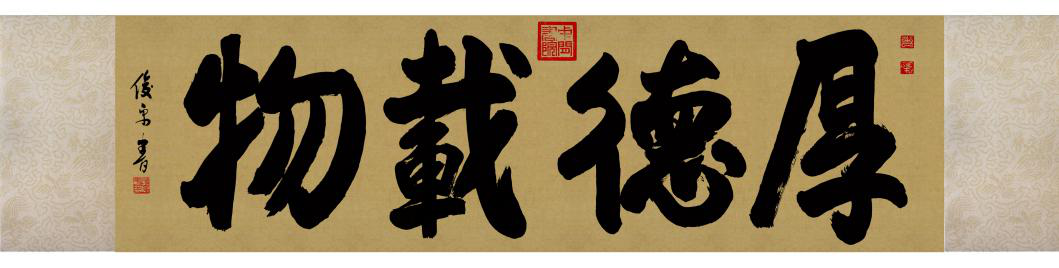 厚德載物
俊京書